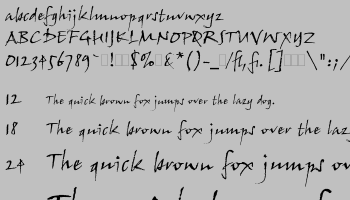 abcdefghijklmnopqrstuvwxyz
ABCDEFGHIJKLMNOPQRSTUVWXYZ
0123456789 ! $% &*()-_ /fl,fi. [] \":;/
12 The quick brown fox jumps over the lazy dog.
18 The quick brown fox jumps over the lazy
24 The quick brown fox jumps ov